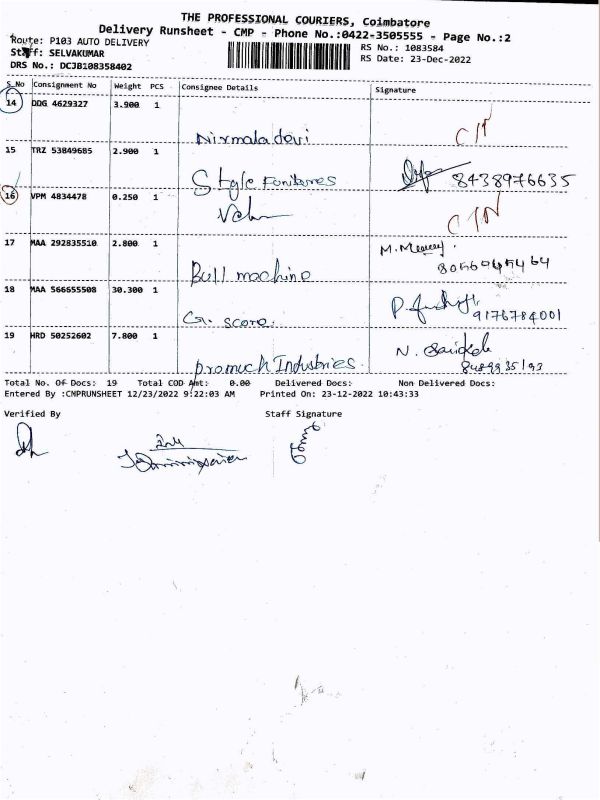 THE PROFESSIONAL COURIERS, Coimbatore
Delivery Runsheet - CMP - Phone No.:0422-3505555 - Page No.:2
Route: P103 AUTO DELIVERY
RS No.: 1083584
Staff: SELVAKUMAR
RS Date: 23-Dec-2022
DRS No.: DCJB108358402
S_No Consignment No Weight PCS Consignee Details Signature
14 DDG 4629327 3.900 1
Nirmaladevi
15 TRZ 53849685 2.900 1
Style
8438976635
16 VPM 4834478 0.250 1
17 MAA 292835510 2.800 1
Bull machine
M.
18 MAA 566655508 30.300 1
G. score.
P.
9176784001
19 HRD 50252602 7.800 1
promech Industries.
N.
Total No. Of Docs: 19 Total COD Amt: 0.00 Delivered Docs: Non Delivered Docs:
Entered By :CMPRUNSHEET 12/23/2022 9:22:03 AM Printed On: 23-12-2022 10:43:33
Verified By Staff Signature